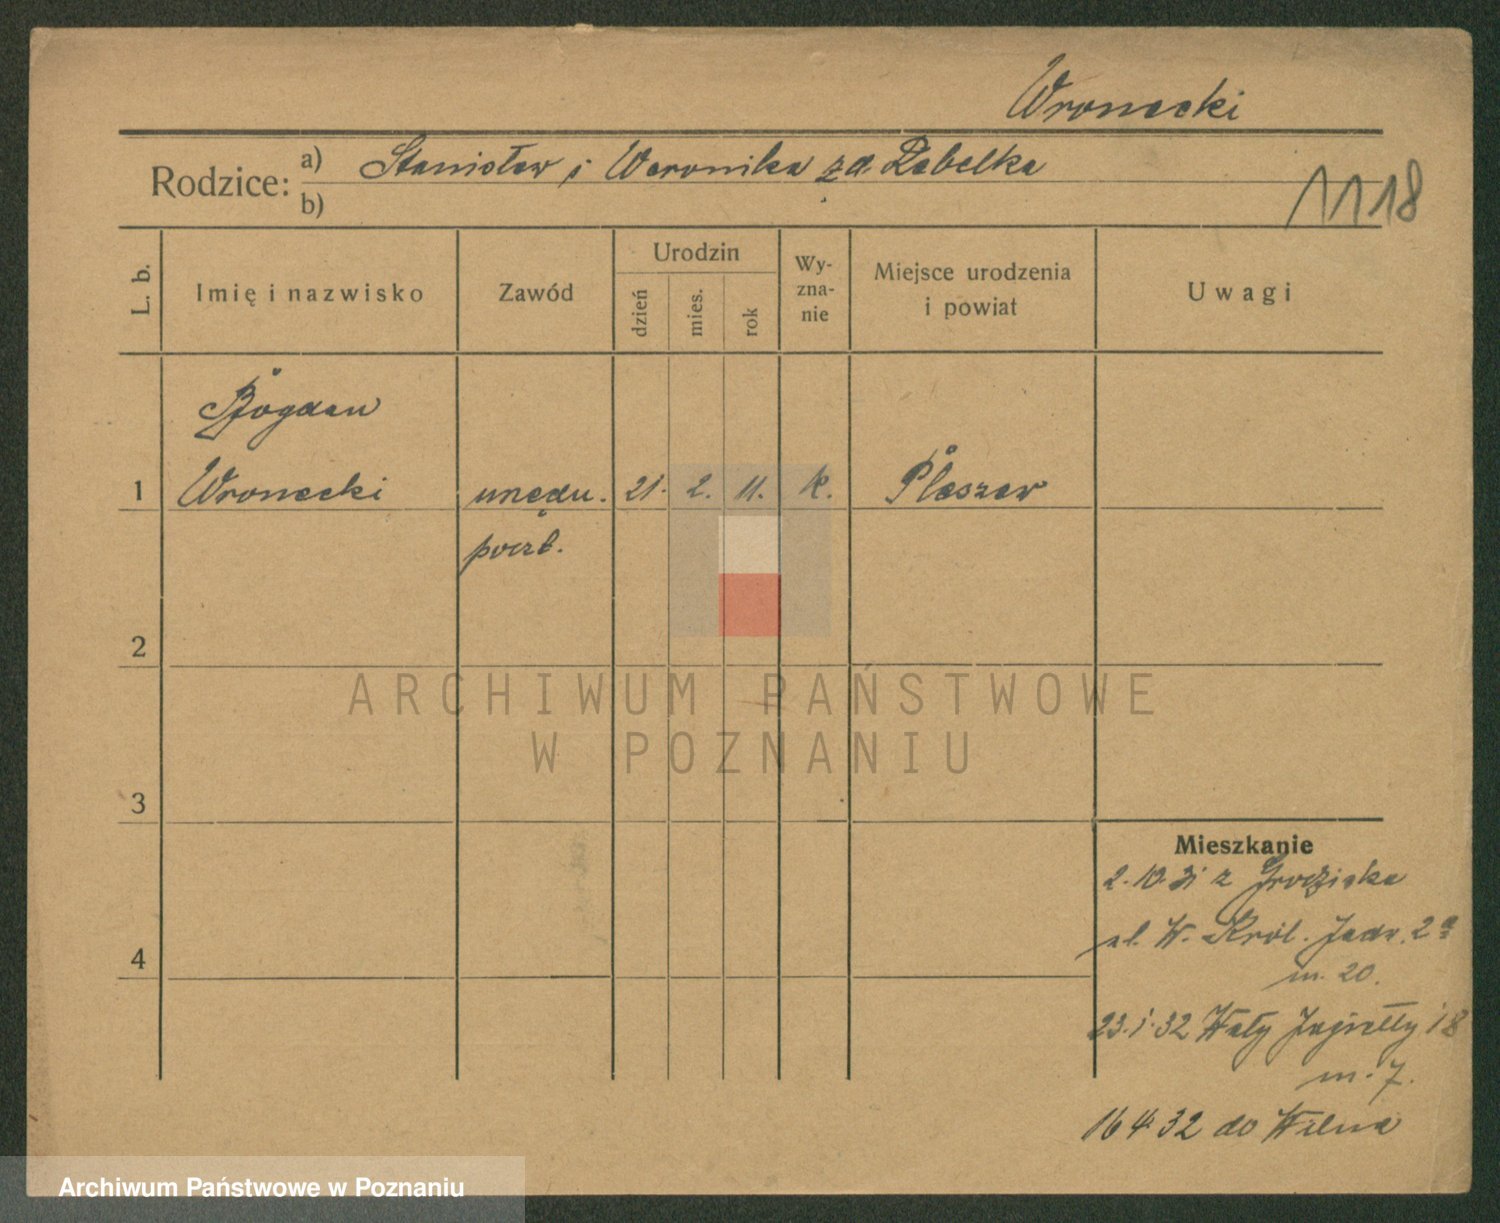 Wronecki
Rodzice: a) Stanisław i Weronika zd. Rebelka
b)
1118
L. b. Imię i nazwisko Zawód Urodzin dzień mies. rok Wy-zna-nie Miejsce urodzenia i powiat Uwagi
Bogdan
1 Wronecki urzędn. 21. 2. 11. k. Pleszew
poczt.
2
ARCHIWUM PAŃSTWOWE
W POZNANIU
3
Mieszkanie
2.10.31 z Grodziska
ul. W. Król. Jadw. 2a
4
m. 20.
23.1.32 Wały Jagiełły 18
m. 7.
16 4 32 do Wilna
Archiwum Państwowe w Poznaniu